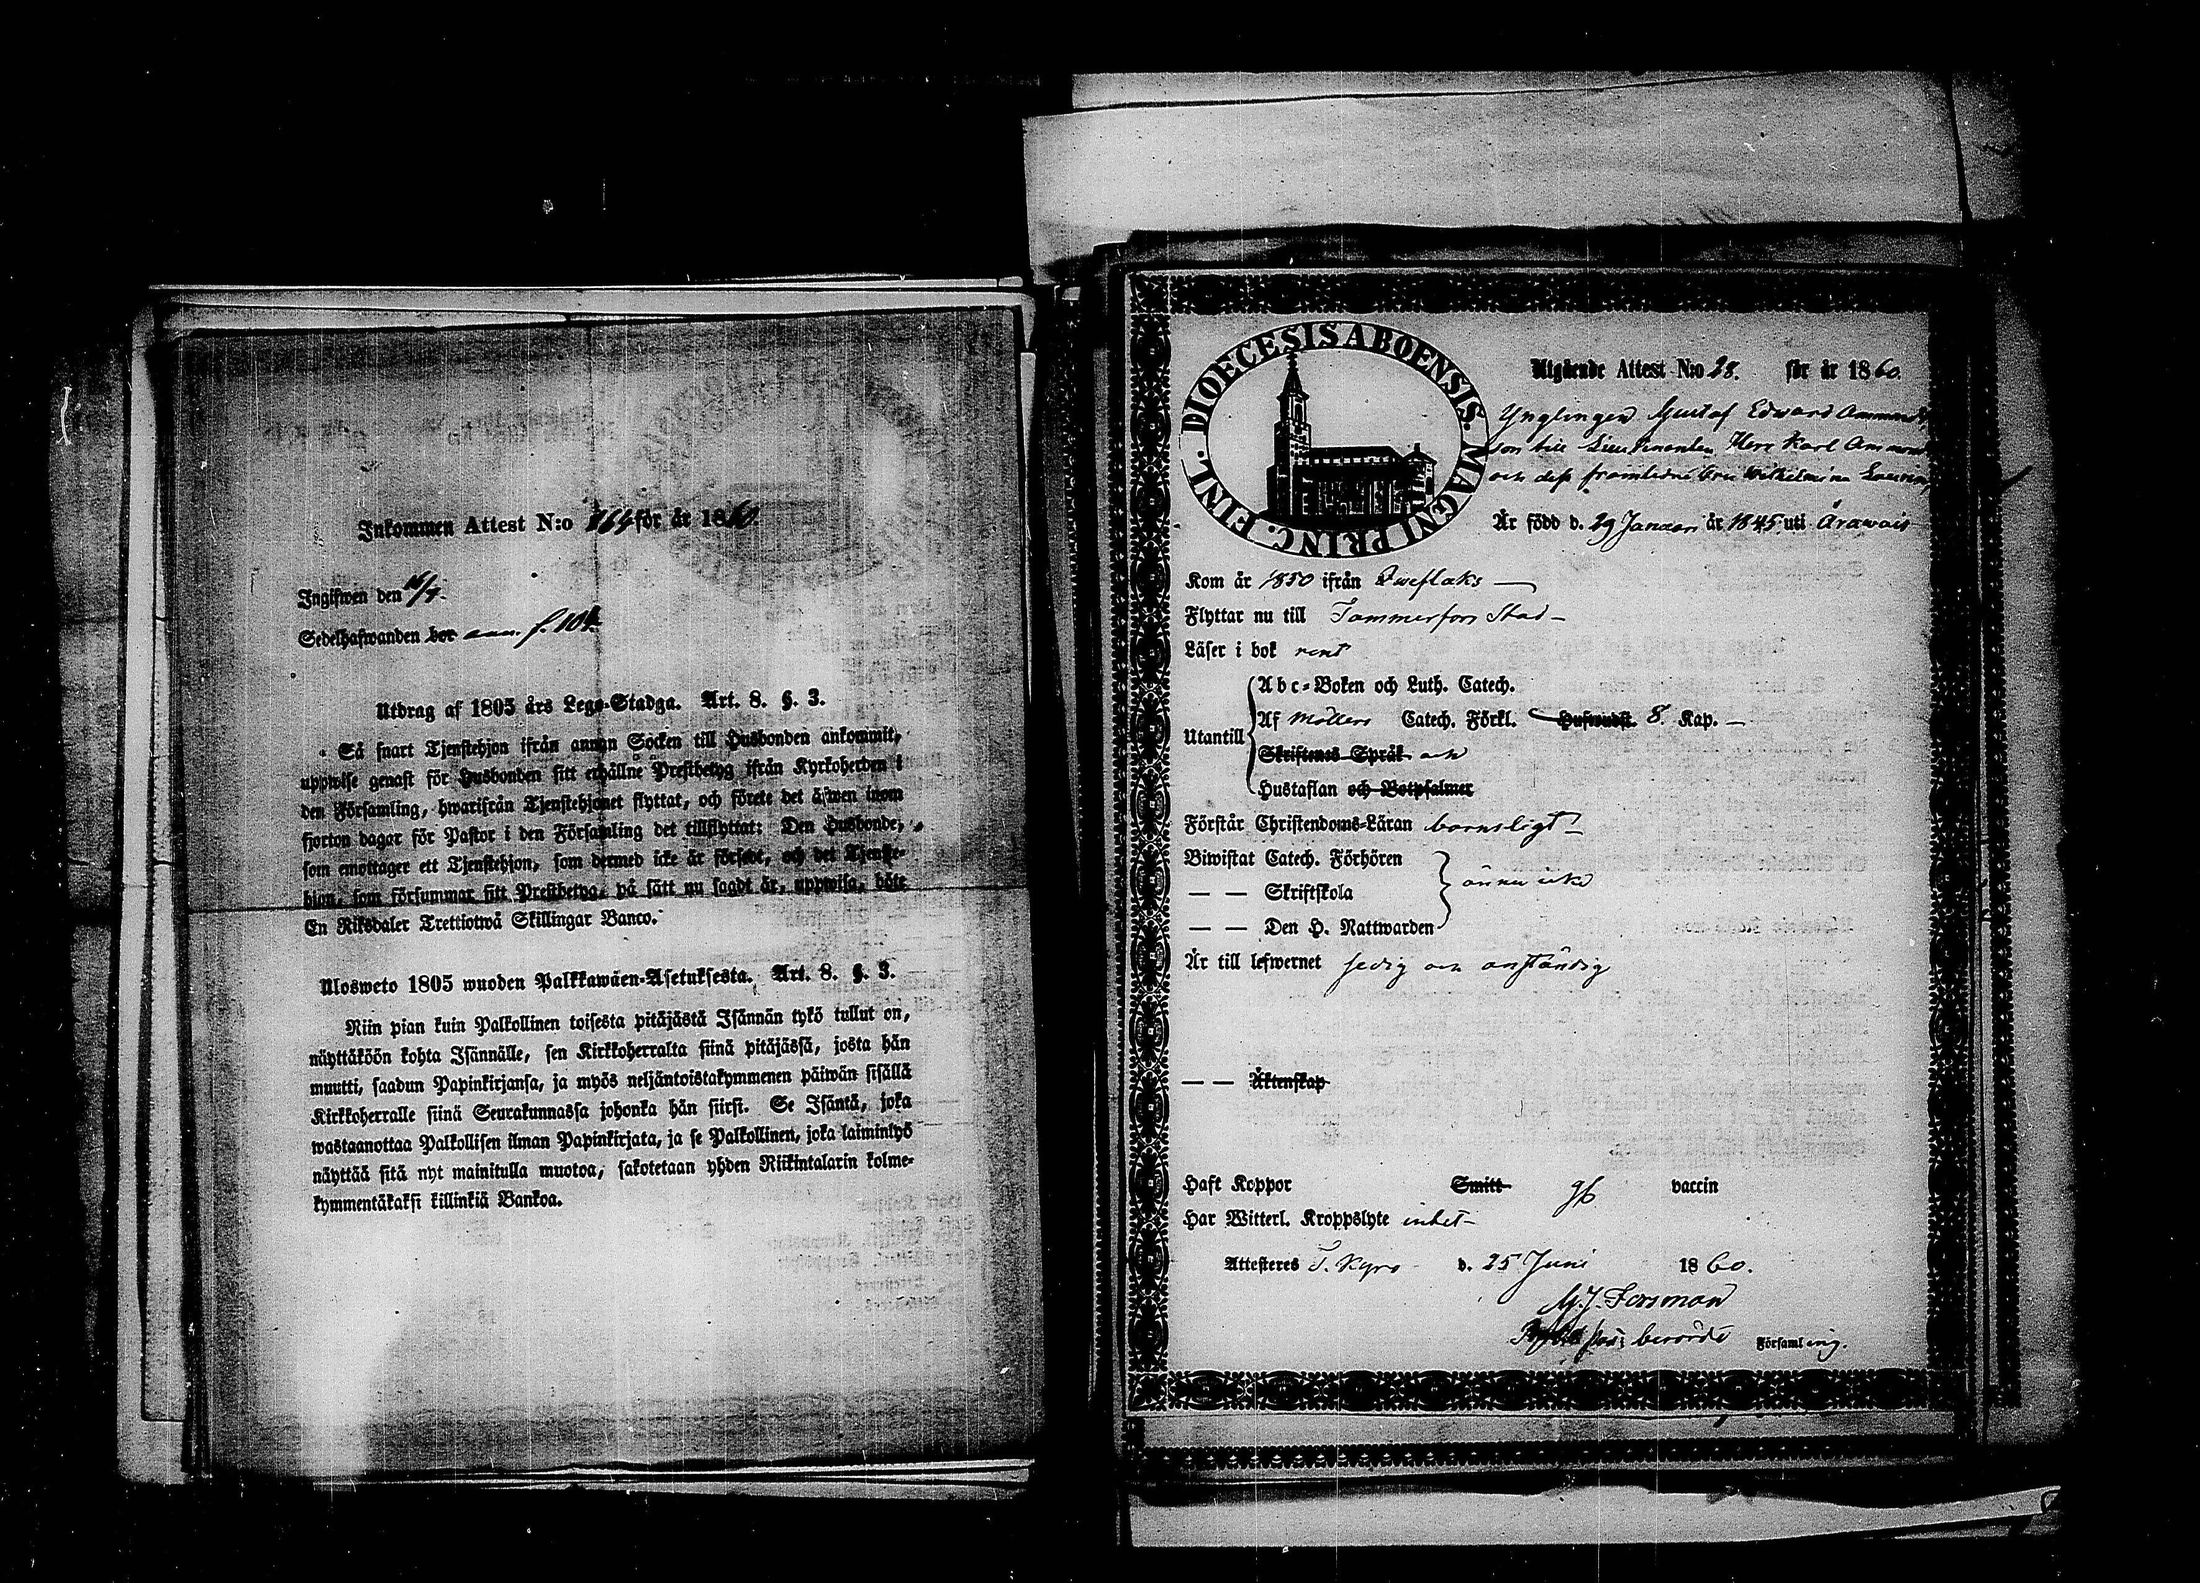 Inkommen Attest N:o 164 för år 1860.
Ingifwen den 16/7.
Sedelhafwanden bor f. 104.
Utdrag af 1805 års Lego-Stadga. Art. 8. §. 3.
Så snart Tjenstehjon ifrån annan Socken till Husbonden ankommit,
uppwise genast för Husbonden sitt erhållne Prestbetyg ifrån Kyrkoherden i
den Församling, hwarifrån Tjenstehjonet flyttat, och förete det äfwen inom
fjorton dagar för Pastor i den Församling det tillflyttat: Den Husbonde,
som emottager ett Tjenstehjon, som dermed icke är försedt, och det Tjenste-
hjon, som försummar sitt Prestbetyg, på sätt nu sagdt är, uppwisa, böte
En Riksdaler Trettiotwå Skillingar Banco.
Ulosweto 1805 wuoden Palkkawäen-Asetuksesta. Art. 8. §. 3.
Niin pian kuin Palkollinen toisesta pitäjästä Isännän tykö tullut on,
näyttäköön kohta Isännälle, sen Kirkkoherralta siinä pitäjässä, josta hän
muutti, saadun Papinkirjansa, ja myös neljäntoistakymmenen päiwän sisällä
Kirkkoherralle siinä Seurakunnassa johonka hän siirsi. Se Isäntä, joka
wastaanottaa Palkollisen ilman Papinkirjata, ja se Palkollinen, joka laiminlyö
näyttää sitä nyt mainitulla muotoa, sakotetaan yhden Riikintalarin kolme-
kymmentäkaksi killinkiä Bankoa.
DIOECESIS ABOENSIS. MAGNI PRINC. FINL.
Utgående Attest N:o 28. för år 1860.
Ynglingen Gustaf Edward Ammondt,
son till Lieutenanten Herr Karl Ammondt
och dess framledne Fru Wilhelmina
Är född d. 29 Januari år 1845 uti Årawais
Kom år 1850 ifrån Qweflaks
Flyttar nu till Tammerfors Stad
Läser i bok rent
Utantill
Abc-Boken och Luth. Catech.
Af Möllers Catech. Förkl. Hufwudst. 8. Kap.
Skriftenes Språk och
Hustaflan och Botpsalmer
Förstår Christendoms-Läran barnsligt
Biwistat Catech. Förhören
— — Skriftskola ännu icke
— — Den H. Nattwarden
Är till lefwernet sedig och anständig
— — Äktenskap
Haft Koppor Smitt vaccin
Har Witterl. Kroppslyte intet
Attesteres T. Kyro d. 25 Juni 1860.
M. J. Forsman
Församling.